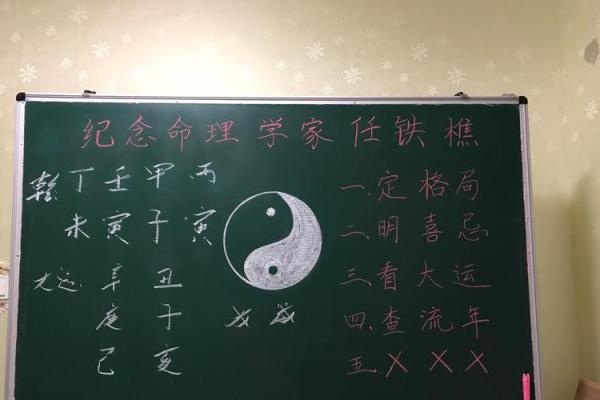 纪念命理学家任铁樵
乾 丁 壬 甲 丙
未 寅 子 寅
大运: 辛 丑
庚 子
己 亥
戊 戌
一.定格局
二.明喜忌
三.看大运
四.查流年
五.XXX